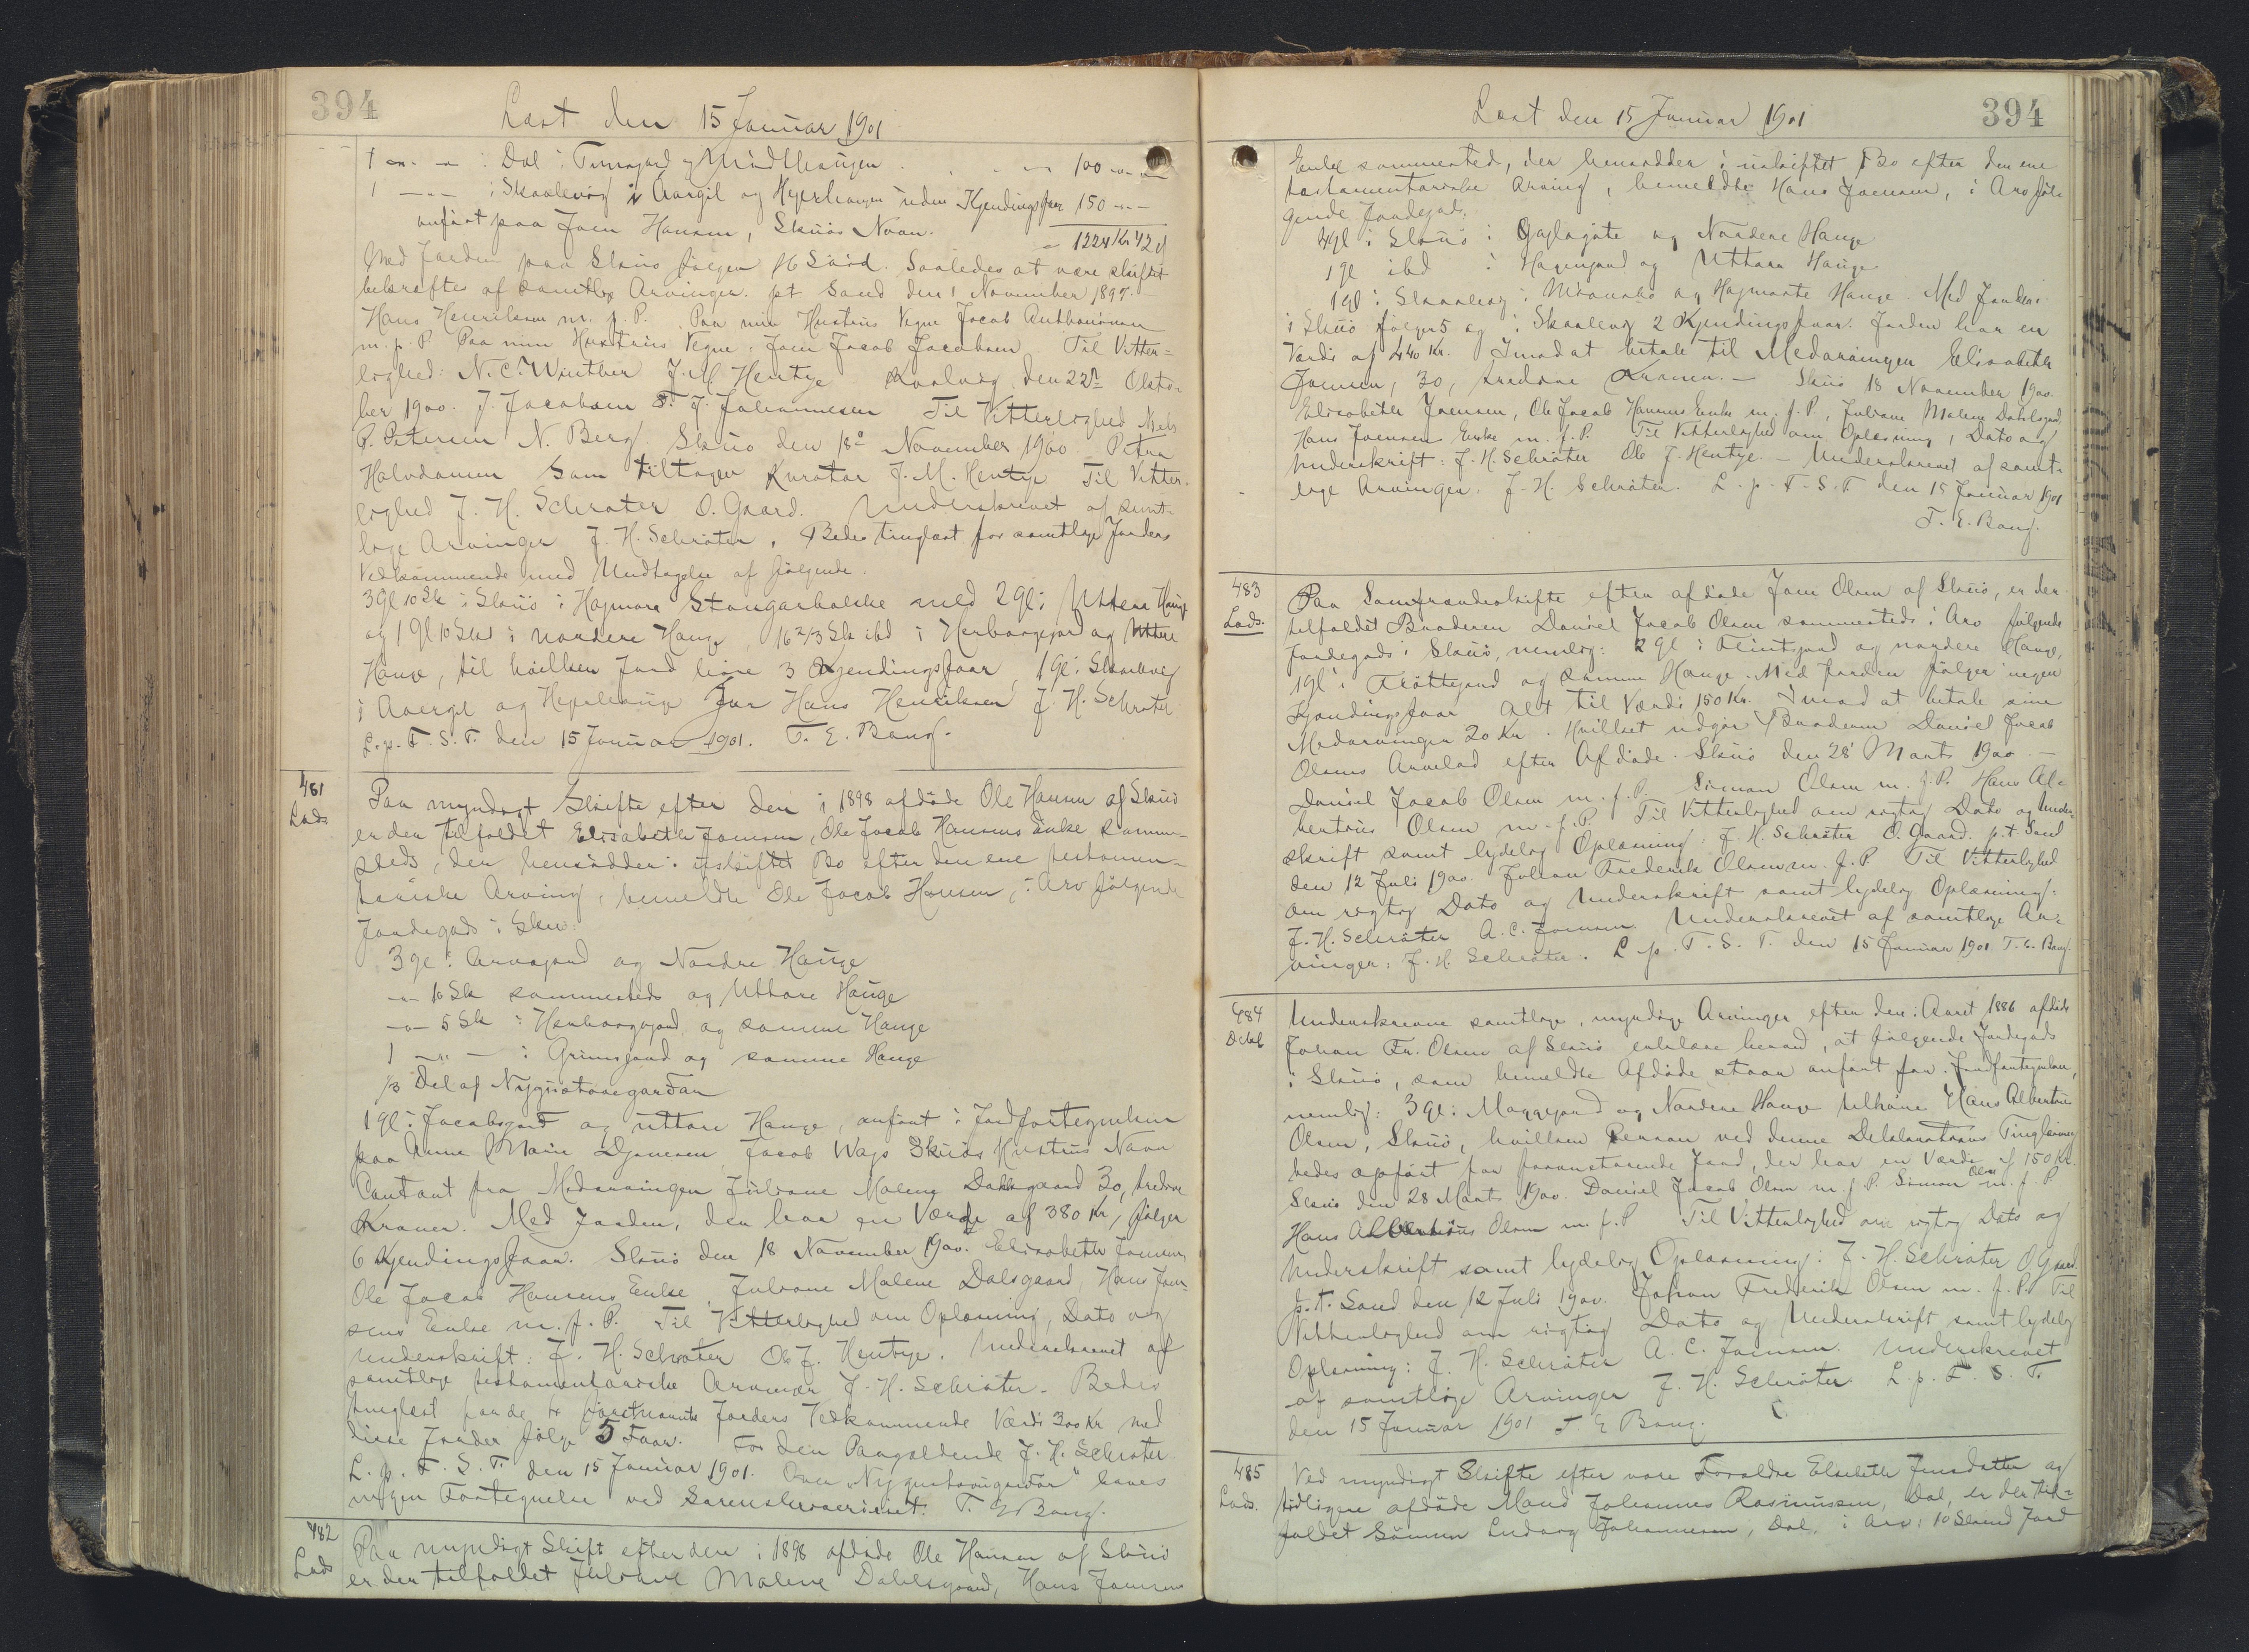 394
Læst den 15 Januar 1901
1 -"- -"- i Dal i Timragard og Midthaugen - " - 100 -"-
1 -"- i Skaalevig i Aargil og Hejerhaugen uden Kjendingsfaar 150 -"-
anført paa Joen Hansen, Skuös Navn. - 1224 Kr 42 Ø
Med Jorden paa Skuö følger 16 Saaledes at være skiftet
bekræftes af samtlige Arvinger. pt Sand den 1 November 1897.
Hans Henriksen m. f. P. Paa min Hustrus Vegne Jacob Anthoniusen
m. f. P. Paa min Hustrus Vegne: Joen Jacob Jacobsen Til Vitter=
lighed: N. C. Winther J. M. Hentze Kvalvig den 22de Okto-
ber 1900. J. Jacobsen J. Johannesen Til Vitterlighed Niels
P. Petersen N. Berg. Skuö den 18de November 1900 Petra
Halvdansen Som tiltagen Kurator J. M. Hentze Til Vitter-
lighed J. H. Schröter O. Gaard. Underskrevet af samt-
lige Arvinger J. H. Schröter. Bedes tinglæst for samtlige Jorders
Vedkommende med Undtagelse af følgende.
3 Gl 10 Sk i Skuö i Hogmara Stongarbolske med 2 Gl i Uttere Hauge
og 1 Gl 10 Sk i nordere Hauge 16 2/3 Sk ibd i Herborgejord og Uttere
Hauge, til hvilken Jord høre 3 Kjendingsfaar, 1 Gl i Skaalevig
i Aargil og Hejehauge For Hans Henriksen J. H. Schröter
L. p. F. S. T. den 15 Januar 1901. T. E. Bang.
481
Lods
Paa myndigt Skifte efter den i 1898 afdöde Ole Hansen af Skuö
er der tilfaldet Elisabeth Joensen, Ole Jacob Hansens Enke samme-
steds, der hensidder i uskiftet Bo efter den ene testamen-
tariske Arving, bemeldte Ole Jacob Hansen, i Arv følgende
Jordegods i Skuö
3 Gl i Arvajord og Nordre Hauge
-"- 10 Sk sammesteds og Uttare Hauge
-"- 5 Sk i Herborgejord og samme Hauge
1 -"- - i Grimsjord og samme Hauge
1/3 Del af Nygustovegardar
1 Gl i Jacobsjord og uttare Hauge, anført i Jordfortegnelsen
paa Anne Marie Djonesen Jacob Wags Skuös Hustrus Navn
Contant fra Medarvingen Juliane Malene Dahlsgaard 30, tredive
Kroner. Med Jorden, der har en Værdi af 380 Kr, følger
6 Kjendingsfaar. Skuö den 18 November 1900. Elisabeth Joensen,
Ole Jacob Hansens Enke, Juliane Malene Dalsgaard, Hans Joen-
sens Enke m. f. P. Til Vitterlighed om Oplæsning, Dato og
Underskrift: J. H. Schröter Ole J. Hentze. Underskrevet af
samtlige testamentariske Arvinger J. H. Schröter. Bedes
tinglæst for de førstnævnte Jorders Vedkommende Værdi 300 Kr med
disse Jorder følge 5 Faar. For den Paagældende J. H. Schröter
L. p. F. S. T. den 15 Januar 1901. Over "Nygustovugardar" haves
ingen Fortegnelse ved Sorenskriveriet. T. E Bang.
482
Lods
Paa myndigt Skift efter den i 1898 afdöde Ole Hansen af Skuö
er der tilfaldet Juliane Malene Dahlsgaard, Hans Joensens
Læst den 15 Januar 1901
394
Enke sammested, der hensidder i uskiftet Bo efter den ene
testamentariske Arving, bemeldte Hans Joensen, i Arv föl-
gende Jordegods.
4 Gl i Skuö i Gaglagöte og Nordere Hauge
1 Gl ibd i Hagenjord og Uttara Hauge
1 Gl i Skaalevig i og Hogmarte Hauge. Med Jorden
i Skuö følger 5 og i Skaalevig 2 Kjendingsfaar. Jorden har en
Værdi af 440 Kr. Imod at betale til Medarvingen Elisabeth
Joensen, 30, tredive Kroner. - Skuö 18 November 1900.
Elisabeth Joensen, Ole Jacob Hansens Enke m. f. P., Juliane Malene Dahlsgaard,
Hans Joensens Enke m. f. P. Til Vitterlighed om Oplæsning, Dato og
Underskrift: J. H. Schröter Ole J. Hentze. - Underskrevet af samt-
lige Arvinger. J. H. Schröter. L. p. F. S. T den 15 Januar 1901
T. E. Bang.
483
Lods.
Paa Samfrændeskifte efter afdöde Joen Olsen af Skuö, er der
tilfaldet Broderen Daniel Jacob Olsen sammesteds i Arv følgende
Jordegods i Skuö, nemlig: 2 Gl i Teintsjord og nordere Hauge,
1 Gl i Tröttejord og samme Hauge. Med Jorden følger ingen
Kjendingsfaar Alt til Værdi 150 Kr. Imod at betale sine
Medarvinger 20 Kr. Hvilket udgör Broderen Daniel Jacob
Olsens Arvelod efter Afdöde. Skuö den 28 Marts 1900. -
Daniel Jacob Olsen m. f. P. Simon Olsen m. f. P. Hans Al-
bertus Olsen m. f. P. Til Vitterlighed om rigtig Dato og Under-
skrift samt lydelig Oplæsning: J. H. Schröter O. Gaard. p. t. Sand
den 12 Juli 1900. Johan Frederik Olsen m. f. P. Til Vitterlighed
om rigtig Dato og Underskrift samt lydelig Oplæsning:
J. H. Schröter A. C. Joensen. Underskrevet af samtlige Ar-
vinger: J. H. Schröter. L. p. F. S. T. den 15 Januar 1901 T. E. Bang.
484
Dekl
Underskrevne samtlige, myndige Arvinger efter den i Aaret 1886 afdöde
Johan Fr. Olsen af Skuö erklære herved, at følgende Jordegods
i Skuö, som bemeldte Afdöde staar anført for i Jordfortegnelsen,
nemlig: 3 Gl i Maggejord og Nordere Hauge tilhöre Hans Albertus
Olsen, Skuö, hvilken Person ved denne Deklarations Tinglæsning
bedes opfört for foranstaaende Jord, der har en Værdi af 150 Kr.
Skuö den 28 Marts 1900. Daniel Jacob Olsen m. f. P. Simon Olsen m. f. P
Hans Albertus Olsen m. f. P Til Vitterlighed om rigtig Dato og
Underskrift samt lydelig Oplæsning: J. H. Schröter O Gaard.
p. t. Sand den 12 Juli 1900. Johan Frederik Olsen m. f. P. Til
Vitterlighed om rigtig Dato og Underskrift samt lydelig
Oplæsning: J. H. Schröter A. C. Joensen. Underskrevet
af samtlige Arvinger J. H. Schröter L. p. F. S. T.
den 15 Januar 1901 T E Bang.
485
Lods.
Ved myndigt Skifte efter vore Forældre Elsebeth Jensdatter og
tidligere afdöde Mand Johannes Rasmussen, Dal, er der til=
faldet Sönnen Ludvig Johannesen, Dal, i Arv: 10 Skind Jord